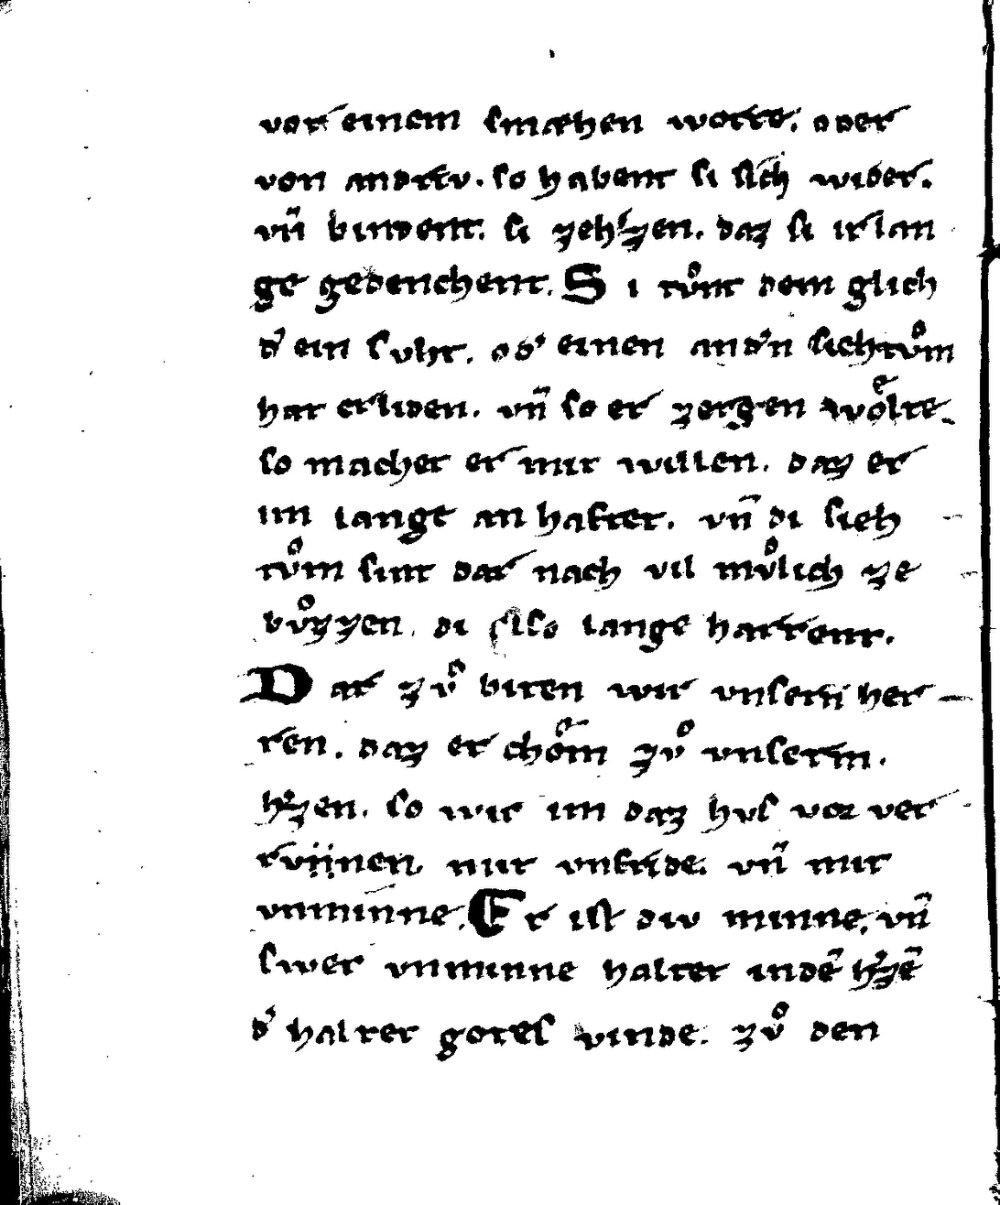 von einem smæhen worte. oder
von andriv. so habent si sich wider.
vn̄ bindent. si zehˀzen. daz si ir lan
ge gedenchent. Si tůnt dem glich
dˀ ein suht. odˀ einen andˀn sichtům
hat erliden. vn̄ so er zergen woͤlte.
so machet er mit willen. daz er
im lange an haftet. vn̄ di sieh
tům sint dar nach vil můlich ze
bůzzen. di si so lange hattent.
Dar zů biten wir unsern her
ren. daz er choͤm zů unserm.
hˀzen. so wir im daz hus vor ver
rvnnen mit unfride. vn̄ mit
unminne. Er ist div minne. vn̄
swer unminne haltet indē hˀzē
dˀ haltet gotes vinde. zů den